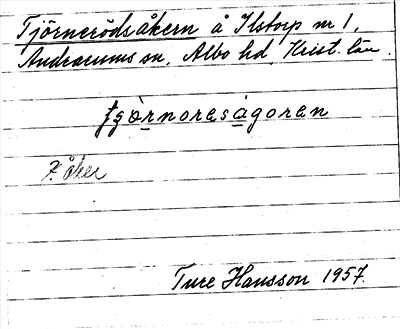 Tjörnerödsåkern å Ilstorp nr 1,
Andrarums sn, Albo hd, Krist. län.
tjö̀rnoresågoren
F. åker
Ture Hansson 1957.